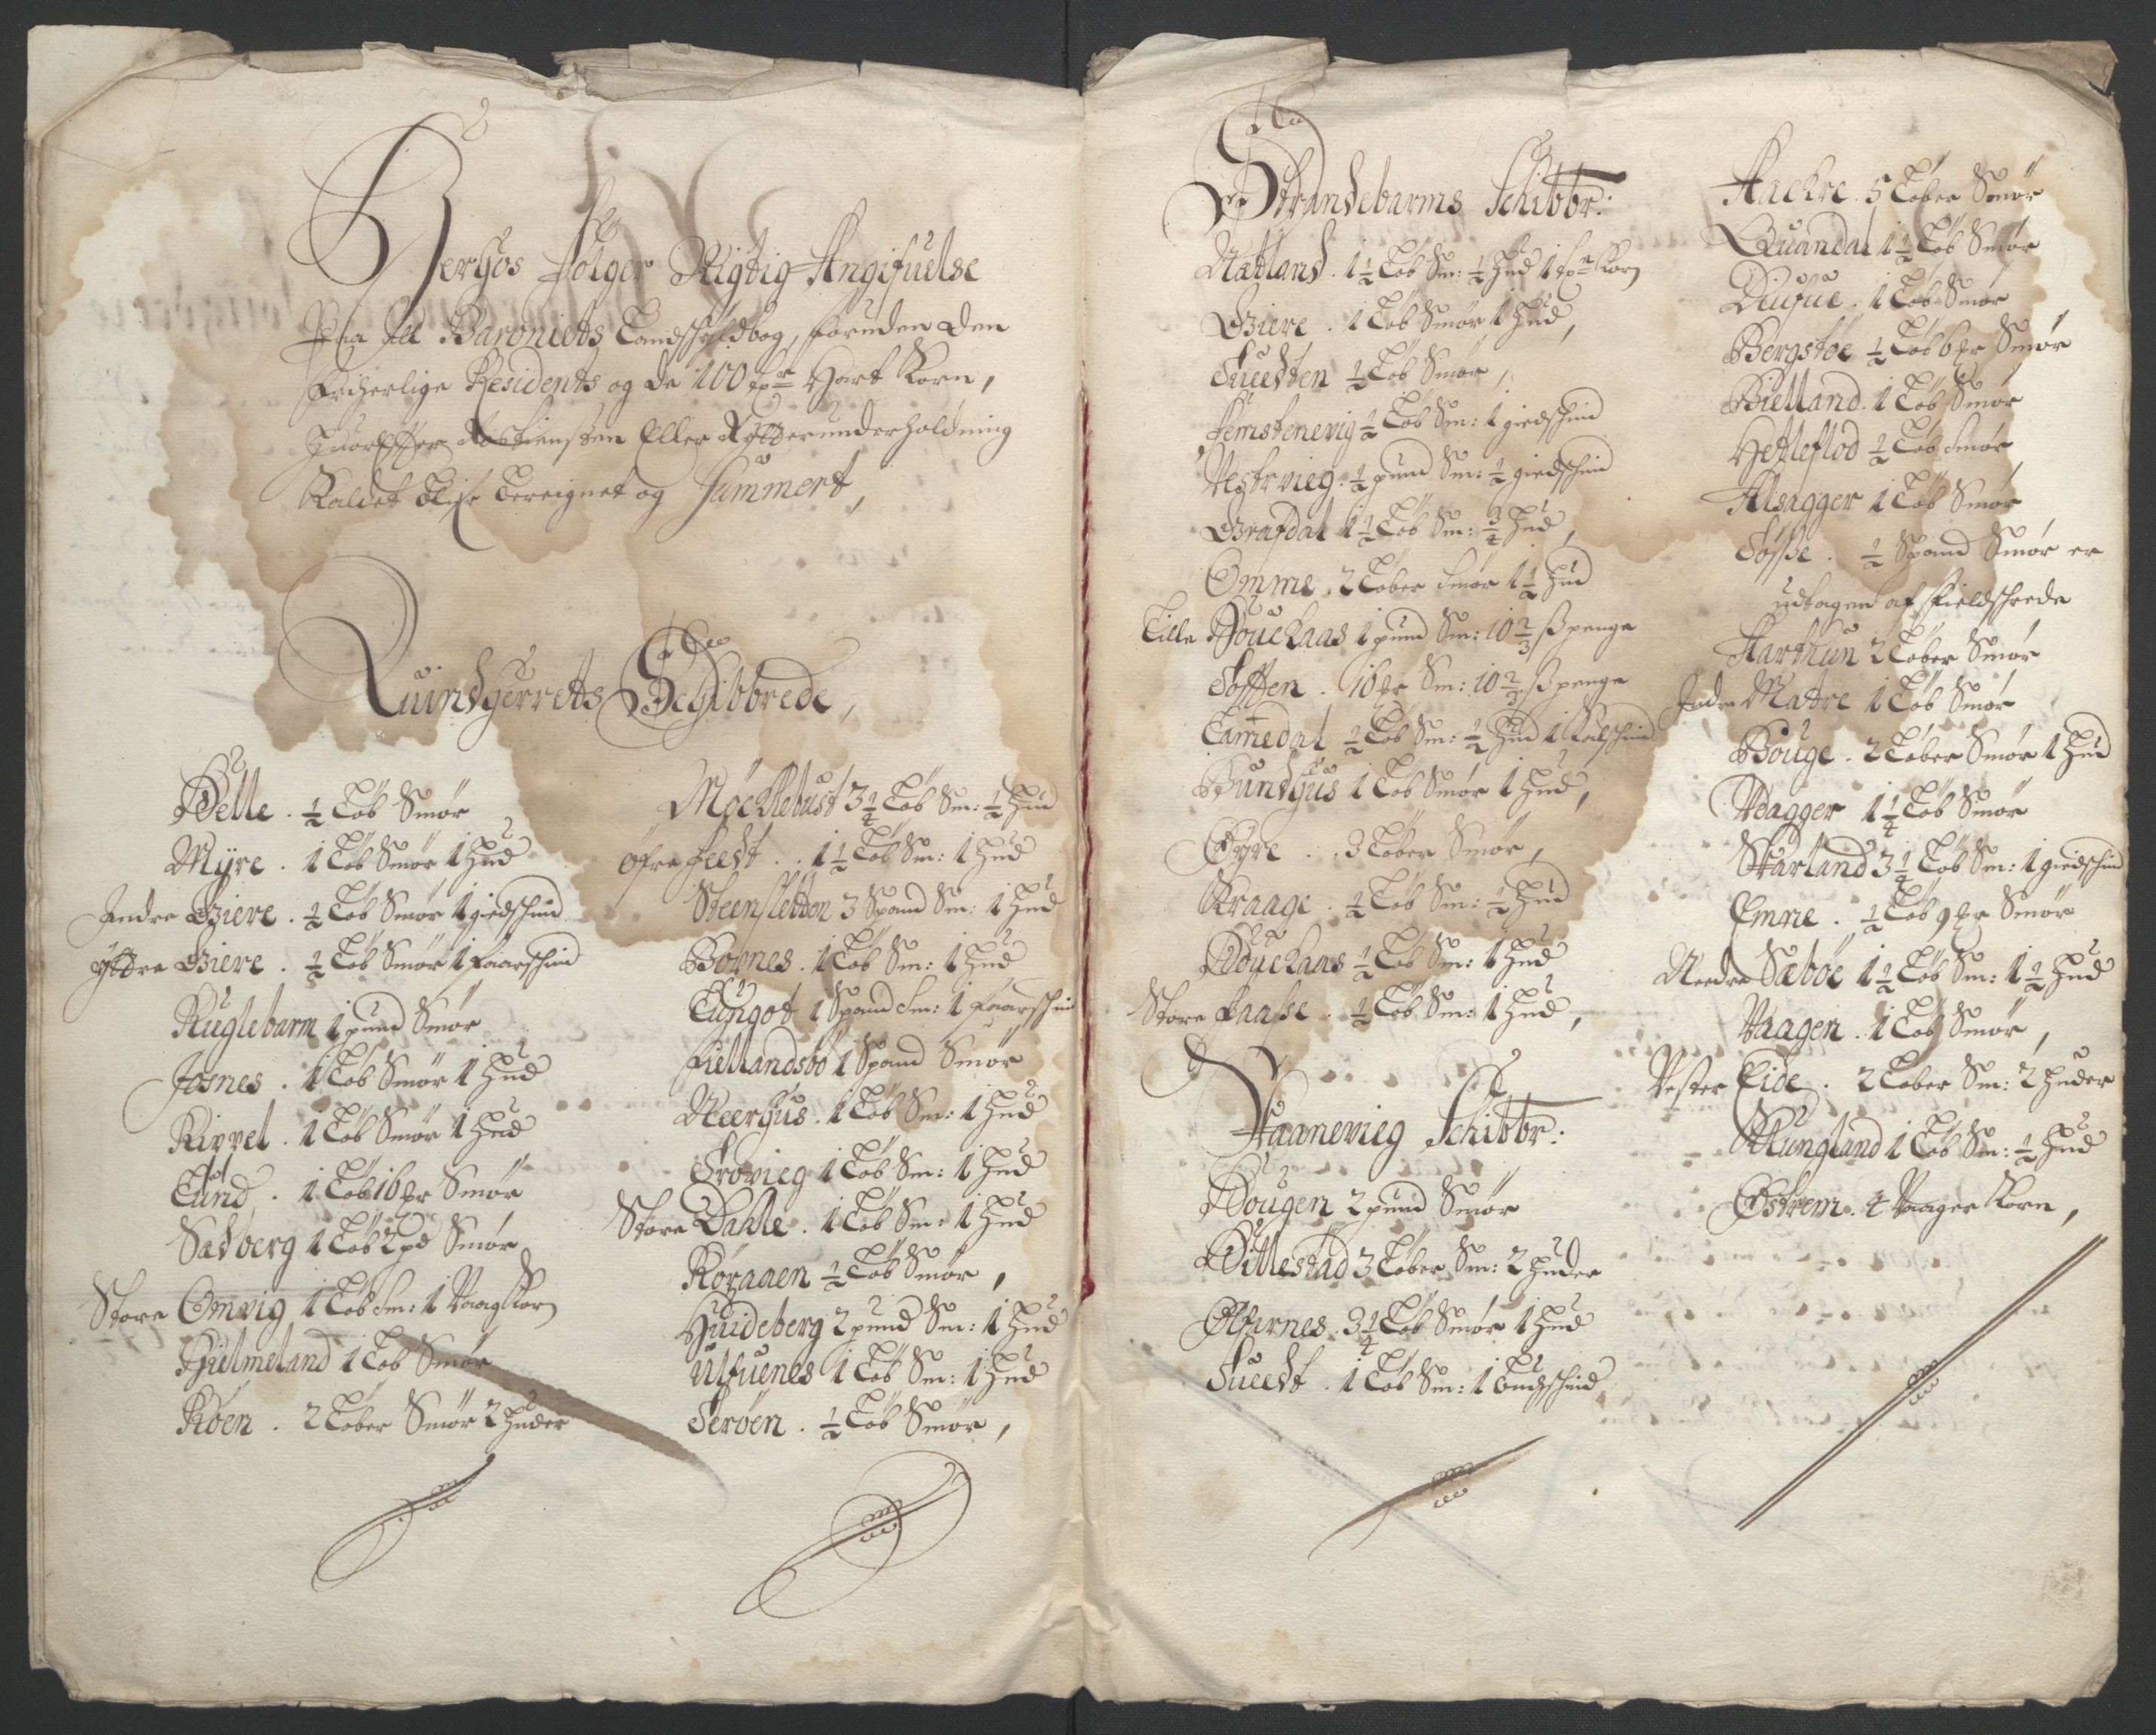 Herhos følger Rigtig Angifuelse
Paa All Baroniets Landschyldbog, foruden den
friherlige Residents og de 100 tdr Hart Korn,
huoreffter Rostiensten Eller Rytterunderholdning
Kaldet blifr bereignet og Summert,
Quindherrets Schibbrede,
Belle . ½ Løb Smør
Myre . 1 Løb Smør 1 hud
Indre Giere . ½ Løb Smør 1 giedschind
Yttre Giere . ½ Løb Smør 1 faarschind
Kuglebarm 1 pund Smør
Josnes . 1 Løb Smør 1 hud
Rivvel . 1 Løb Smør 1 hud
Lund . 1 Løb 16 pr Smør
Sædberg 1 Løb 2 pd Smør
Store Omvig 1 Løb Sm: 1 Vaag Korn
Hielmeland 1 Løb Smør
Røen . 2 Løber Smør 2 huder
Møcklebust 3¼ Løb Sm: ½ hud
Øfre Seedt . . 1½ Løb Sm: 1 hud
Steensletten 3 Spand Sm: 1 hud
Bognes . 1 Løb Sm: 1 hud
1 Spand Sm: 1 faarschind
Fiellandsbo 1 Spand Smør
Neerhus . 1 Løb Sm: 1 hud
Frøvieg 1 Løb Sm: 1 hud
Store Dahle . 1 Løb Sm: 1 hud
Røraaen ½ Løb Smør,
Huideberg 2 pund Sm: 1 hud
Ulfuenes 1 Løb Sm: 1 hud
Serøen . ½ Løb Smør,
Strandebarms Schibbr:
Nætland . 1½ Løb Sm: ½ hud 1 tde Korn
Giere . 1 Løb Smør 1 hud,
Sueedten ½ Løb Smør,
Femstenevig ½ Løb Sm: 1 giedschind
Vestrvieg . ½ pund Sm: ½ giedschind
Grafdal 1½ Løb Sm: ¾ hud,
Omme . 2 Løber Smør 1½ hud
Lille Houckaas 1 pund Sm: 10⅔ ß penge
Tofften . 16 pr Sm: 10⅔ ß penge
Lammedal ½ Løb Sm: ½ hud 1 Kalschind
Bundhus 1 Løb Smør 1 hud,
Øyre . . 3 Løber Smør,
Kraage . ½ Løb Sm: ½ hud
Houckaas ½ Løb Sm: 1 hud
Store Laaße . ½ Løb Sm: 1 hud,
Faanevieg Schibbr:
Hougen 2 pund Smør
Millestad 3 Løber Sm: 2 huder
Ølfirnes . 3¼ Løb Smør 1 hud
Sueedt . 1 Løb Sm: 1 buchschind
Aackre . 5 Løber Smør
Quandal 1½ Løb Smør
Diufue . 1 Løb Smør
Bergstøe ½ Løb 6 pr Smør
Bielland . 1 Løb Smør
Hetleflod ½ Løb Smør
Alsagger 1 Løb Smør
Toffte . ½ Spand Smør er
udtagen af fieldschrede
Aarthun 2 Løber Smør
Indre Matre 1 Løb Smør
Houge . 2 Løber Smør 1 hud
Vdagger 1¼ Løb Smør
Skarland 3¼ Løb Sm: 1 giedschind
Emme . ½ Løb 9 pr Smør
Needre Sæbøe 1½ Løb Sm: 1½ hud
Vaagen . 1 Løb Smør,
Vester Eide . 2 Løber Sm: 2 huder
Rungland 1 Løb Sm: ½ hud
Østrem . 4 Vaager Korn,